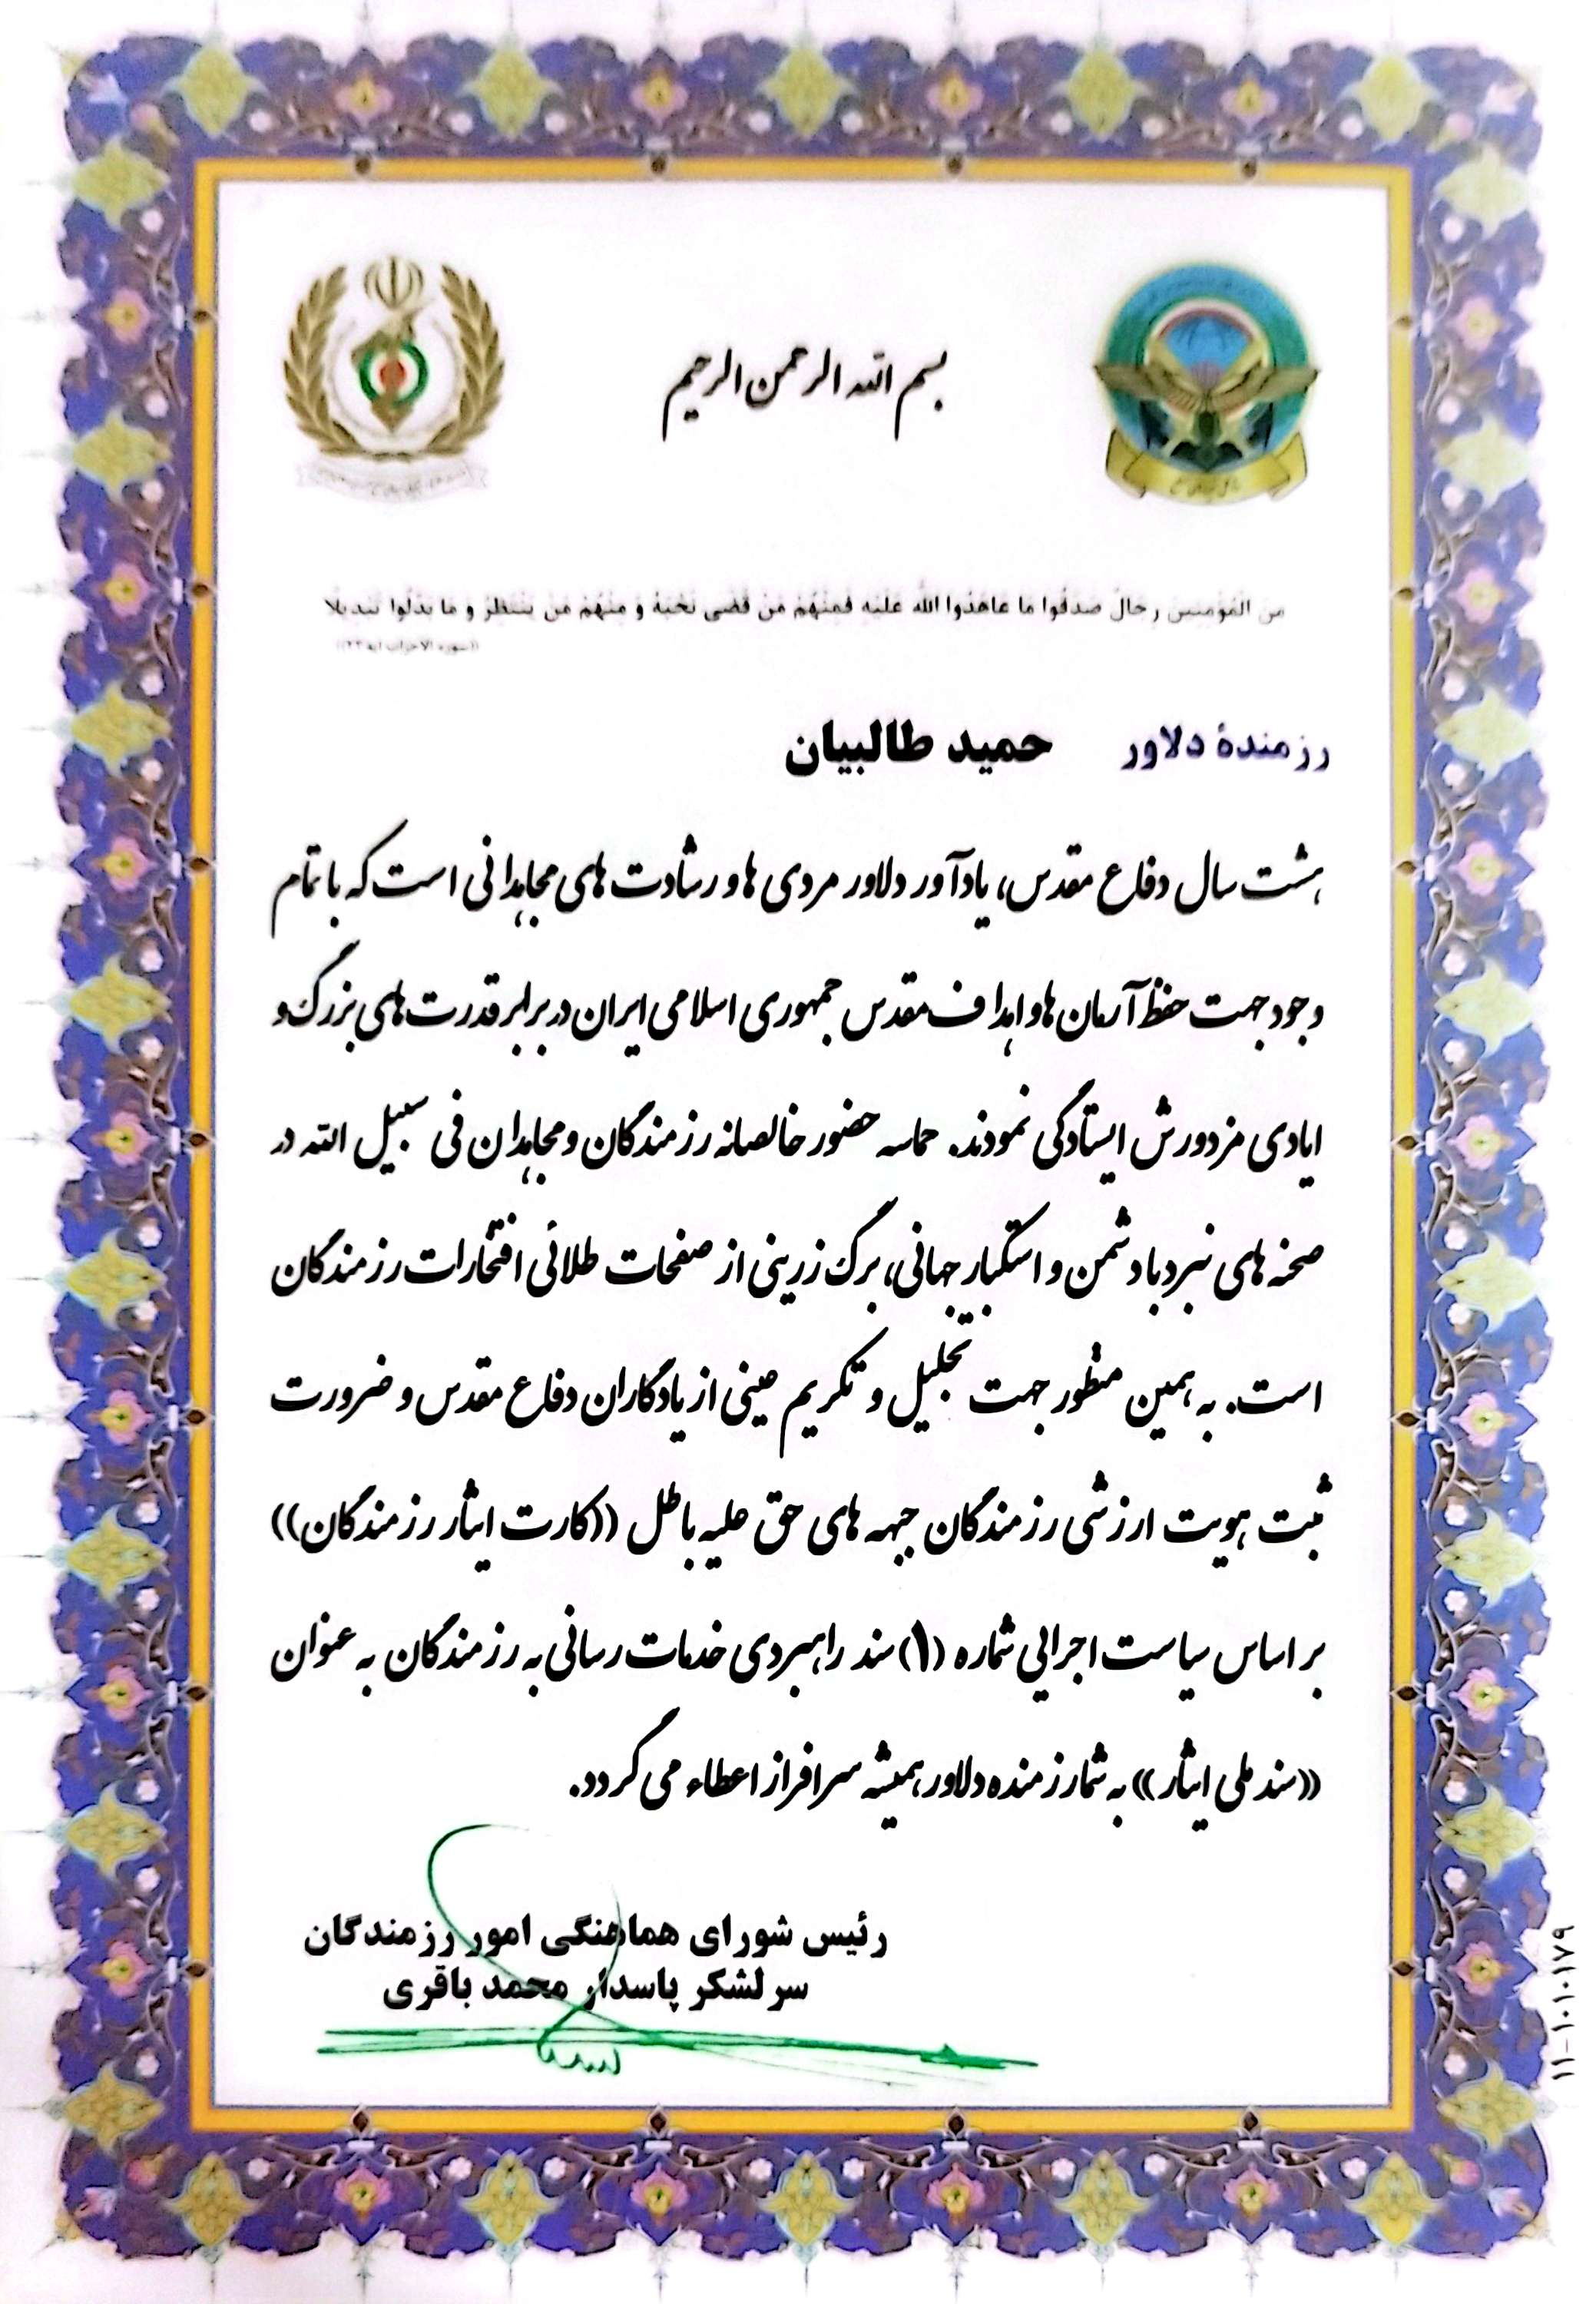 بسم الله الرحمن الرحیم
من المُؤمِنینَ رِجالٌ صَدَقُوا ما عاهَدُوا اللهَ عَلَیهِ فَمِنهُم مَن قَضى نَحبَهُ وَ مِنهُم مَن یَنتَظِرُ وَ ما بَدَّلُوا تَبدیلًا
((سوره الاحزاب آیه ۲۳))
رزمندهٔ دلاور حمید طالبیان
هشت سال دفاع مقدس، یادآور دلاور مردی ها و رشادت های مجاهدانی است که با تمام
وجود جهت حفظ آرمان ها و اهداف مقدس جمهوری اسلامی ایران در برابر قدرت های بزرگ و
ایادی مزدورش ایستادگی نمودند. حماسه حضور خالصانه رزمندگان و مجاهدان فی سبیل الله در
صحنه های نبرد با دشمن و استکبار جهانی، برگ زرینی از صفحات طلائی افتخارات رزمندگان
است. به همین منظور جهت تجلیل و تکریم عینی از یادگاران دفاع مقدس و ضرورت
ثبت هویت ارزشی رزمندگان جبهه های حق علیه باطل ((کارت ایثار رزمندگان))
بر اساس سیاست اجرایی شماره (۱) سند راهبردی خدمات رسانی به رزمندگان به عنوان
«سند ملی ایثار» به شما رزمنده دلاور همیشه سرافراز اعطاء می گردد.
رئیس شورای هماهنگی امور رزمندگان
سرلشکر پاسدار محمد باقری
۱۱-۱۰۱۰۱۷۹